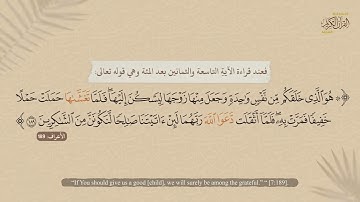 القرآن الكريم
فعند قراءة الآية التاسعة والثمانين بعد المئة وهي قوله تعالى:
﴿۞ هُوَ ٱلَّذِي خَلَقَكُم مِّن نَّفۡسٖ وَٰحِدَةٖ وَجَعَلَ مِنۡهَا زَوۡجَهَا لِيَسۡكُنَ إِلَيۡهَاۖ فَلَمَّا تَغَشَّىٰهَا حَمَلَتۡ حَمۡلًا
خَفِيفٗا فَمَرَّتۡ بِهِۦۖ فَلَمَّآ أَثۡقَلَت دَّعَوَا ٱللَّهَ رَبَّهُمَا لَئِنۡ ءَاتَيۡتَنَا صَٰلِحٗا لَّنَكُونَنَّ مِنَ ٱلشَّٰكِرِينَ ١٨٩﴾
الأعراف: 189
"If You should give us a good [child], we will surely be among the grateful." " [7:189].